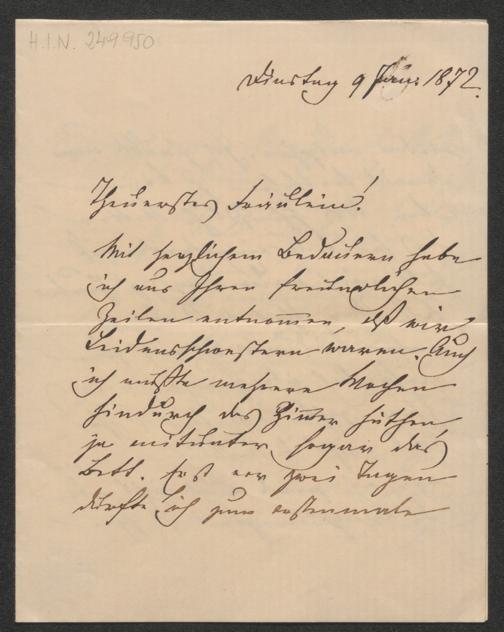 H.I.N. 249950
Dinstag 9 Jän: 1872.
Theuerstes Fräulein!
Mit herzlichem Bedauern habe
ich aus Ihren freundlichen
Zeilen entnommen, daß wir
Leidensschwestern waren. Auch
ich mußte mehrere Wochen
hindurch das Zimmer hüthen,
ja mitunter sogar das
Bett. Erst vor zwei Tagen
durfte ich zum erstenmale